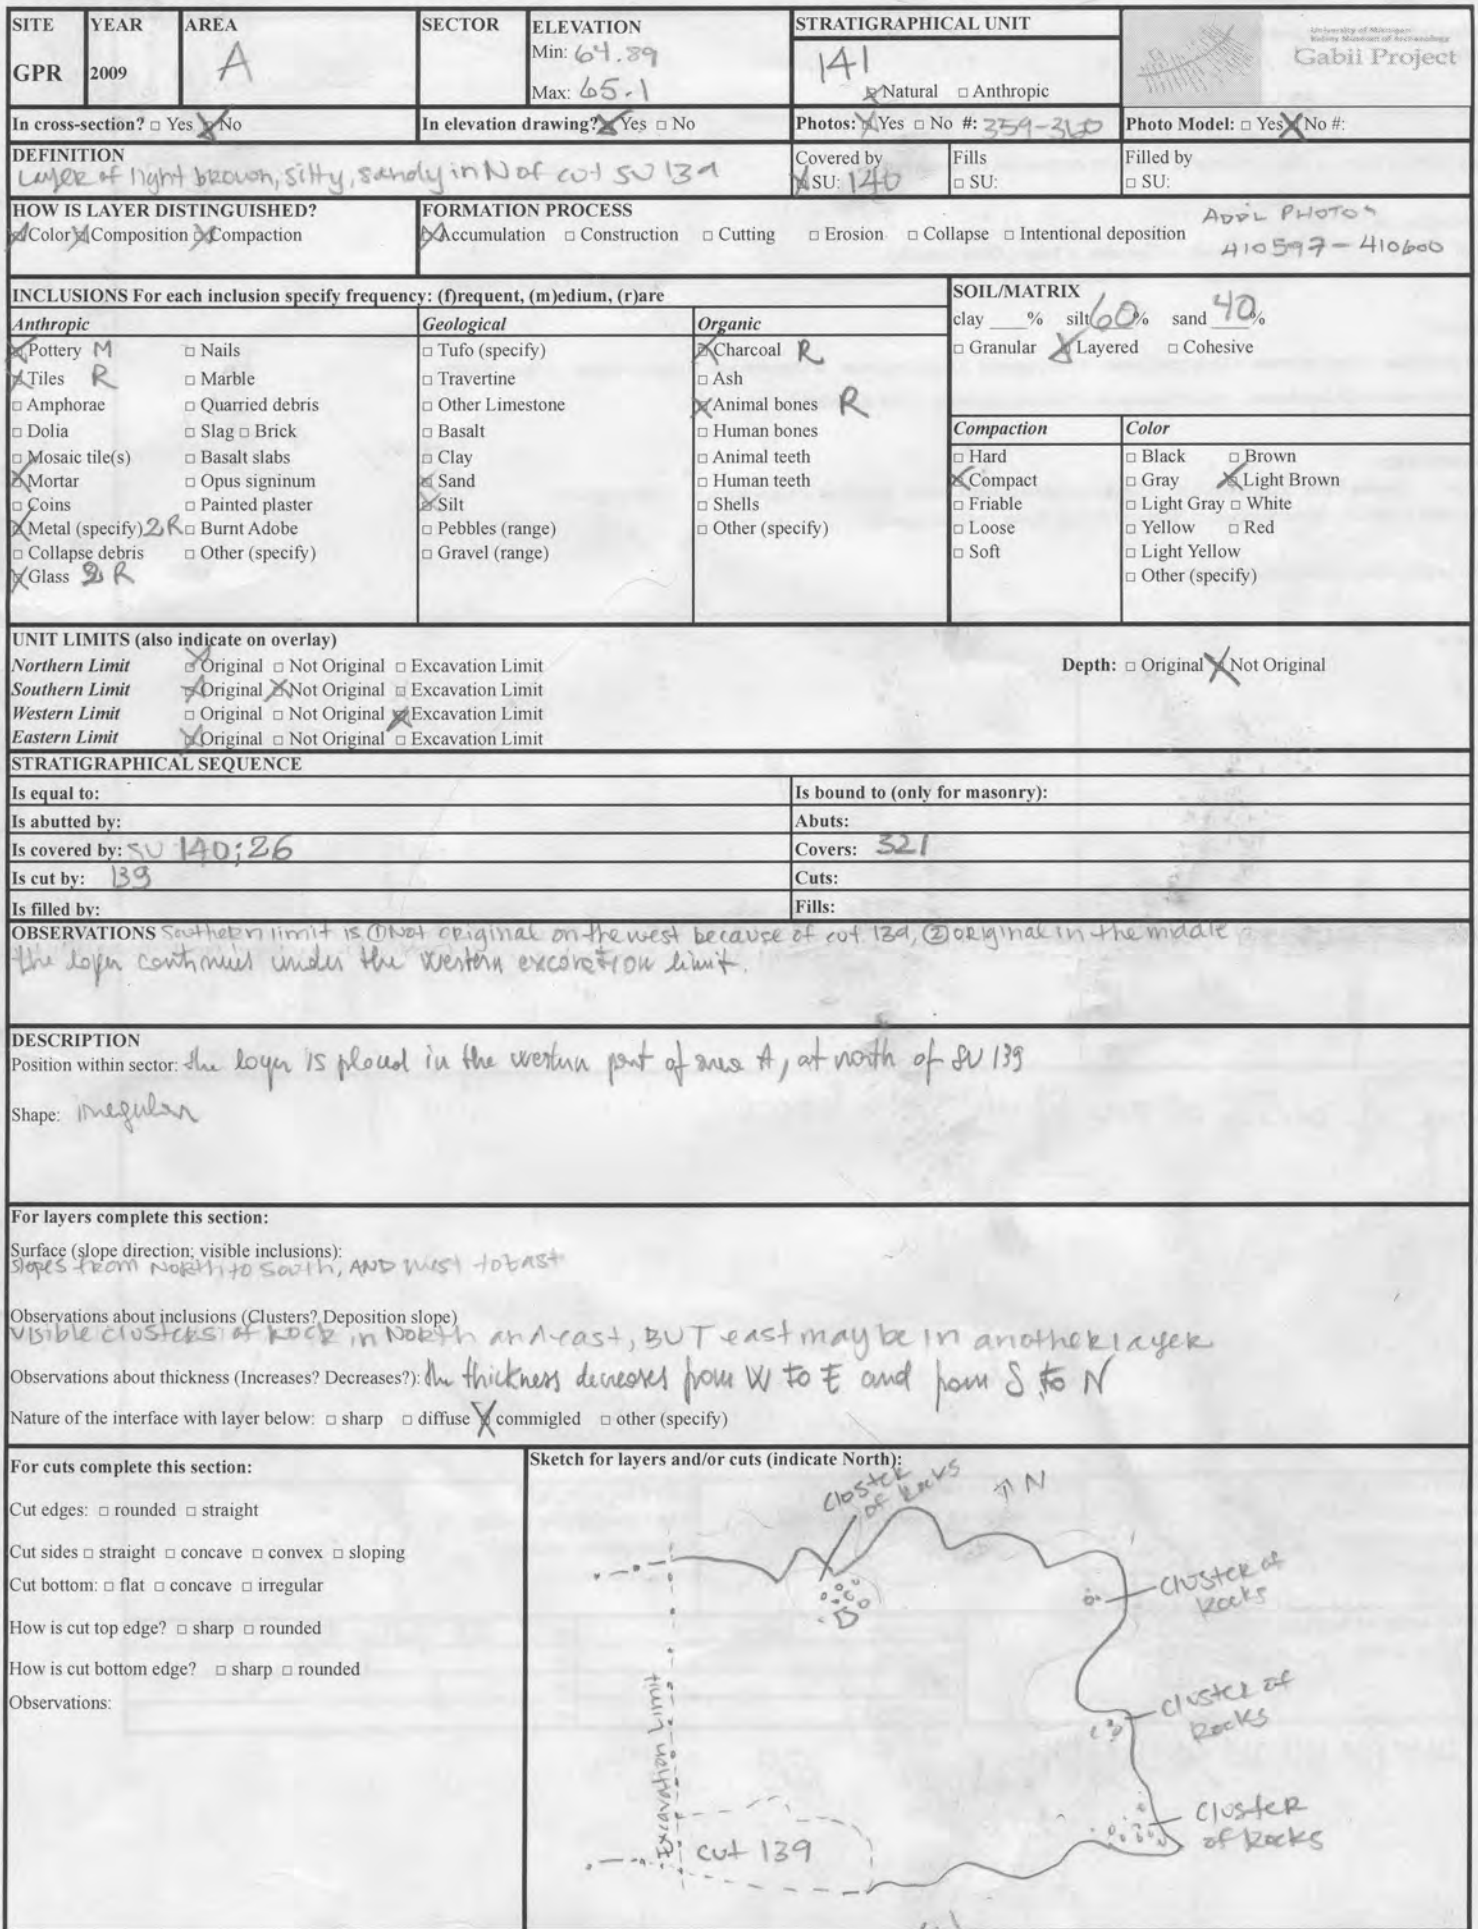 SITE YEAR AREA SECTOR ELEVATION STRATIGRAPHICAL UNIT
GPR 2009 A Min: 64.89 Max: 65.1 141
☒ Natural □ Anthropic
University of Michigan
Kelsey Museum of Archaeology
Gabii Project
In cross-section? □ Yes ☒ No In elevation drawing? ☒ Yes □ No Photos: ☒ Yes □ No #: 359-360 Photo Model: □ Yes ☒ No #:
DEFINITION
Layer of light brown, silty, sandy in N of cut SU 139
Covered by
☒ SU: 140
Fills
□ SU:
Filled by
□ SU:
HOW IS LAYER DISTINGUISHED?
☒ Color ☒ Composition ☒ Compaction
FORMATION PROCESS
☒ Accumulation □ Construction □ Cutting □ Erosion □ Collapse □ Intentional deposition
ADDL PHOTOS
410597-410600
INCLUSIONS For each inclusion specify frequency: (f)requent, (m)edium, (r)are
Anthropic
☒ Pottery M □ Nails
☒ Tiles R □ Marble
□ Amphorae □ Quarried debris
□ Dolia □ Slag □ Brick
□ Mosaic tile(s) □ Basalt slabs
☒ Mortar □ Opus signinum
□ Coins □ Painted plaster
☒ Metal (specify) 2 R □ Burnt Adobe
□ Collapse debris □ Other (specify)
☒ Glass 2 R
Geological
□ Tufo (specify)
□ Travertine
□ Other Limestone
□ Basalt
□ Clay
☒ Sand
☒ Silt
□ Pebbles (range)
□ Gravel (range)
Organic
☒ Charcoal R
□ Ash
☒ Animal bones R
□ Human bones
□ Animal teeth
□ Human teeth
□ Shells
□ Other (specify)
SOIL/MATRIX
clay ____% silt 60% sand 40%
□ Granular ☒ Layered □ Cohesive
Compaction
□ Hard
☒ Compact
□ Friable
□ Loose
□ Soft
Color
□ Black □ Brown
□ Gray ☒ Light Brown
□ Light Gray □ White
□ Yellow □ Red
□ Light Yellow
□ Other (specify)
UNIT LIMITS (also indicate on overlay)
Northern Limit ☒ Original □ Not Original □ Excavation Limit Depth: □ Original ☒ Not Original
Southern Limit ☒ Original ☒ Not Original □ Excavation Limit
Western Limit □ Original □ Not Original ☒ Excavation Limit
Eastern Limit ☒ Original □ Not Original □ Excavation Limit
STRATIGRAPHICAL SEQUENCE
Is equal to: Is bound to (only for masonry):
Is abutted by: Abuts:
Is covered by: SU 140; 26 Covers: 321
Is cut by: 139 Cuts:
Is filled by: Fills:
OBSERVATIONS Southern limit is ① Not original on the west because of cut 139, ② original in the middle
the layer continues under the western excavation limit.
DESCRIPTION
Position within sector: the layer is placed in the western part of area A, at north of SU 139
Shape: irregular
For layers complete this section:
Surface (slope direction; visible inclusions):
slopes from North to South, AND west to East
Observations about inclusions (Clusters? Deposition slope)
visible clusters of rock in North and east, BUT east may be in another layer
Observations about thickness (Increases? Decreases?): the thickness decreases from W to E and from S to N
Nature of the interface with layer below: □ sharp □ diffuse ☒ commigled □ other (specify)
For cuts complete this section:
Cut edges: □ rounded □ straight
Cut sides □ straight □ concave □ convex □ sloping
Cut bottom: □ flat □ concave □ irregular
How is cut top edge? □ sharp □ rounded
How is cut bottom edge? □ sharp □ rounded
Observations:
Sketch for layers and/or cuts (indicate North):
cluster
of rocks
N
cluster of
rocks
cluster of
rocks
cluster
of rocks
Excavation Limit
cut 139